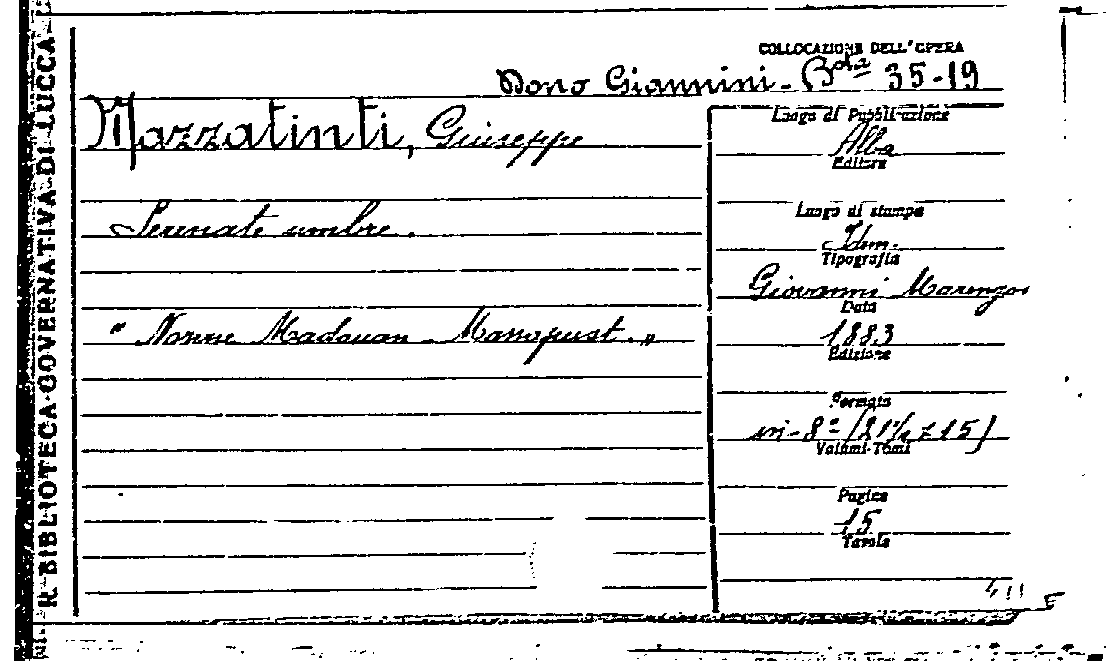 R. BIBLIOTECA GOVERNATIVA DI LUCCA
COLLOCAZIONE DELL'OPERA
Dono Giannini - Bta 35-19
Mazzatinti, Giuseppe
Luogo di Pubblicazione
Alba
Editore
Serenate umbre.
Luogo di stampa
Idem.
Tipografia
Giovanni Marengo
Data
" Nozze Madouan - Massopust. "
1883
Edizione
Formato
in-8º (21½ x 15)
Volumi-Tomi
Pagine
15
Tavole